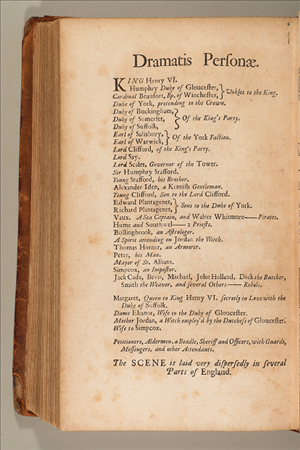 Dramatis Personæ.
KING Henry VI.
Humphry Duke of Gloucester, } Unkles to the King.
Cardinal Beaufort, Bp. of Winchester,
Duke of York, pretending to the Crown.
Duke of Buckingham,
Duke of Somerset, } Of the King's Party.
Duke of Suffolk,
Earl of Salisbury, } Of the York Faction.
Earl of Warwick,
Lord Clifford, of the King's Party.
Lord Say.
Lord Scales, Governor of the Tower.
Sir Humphry Stafford.
Young Stafford, his Brother.
Alexander Iden, a Kentish Gentleman.
Young Clifford, Son to the Lord Clifford.
Edward Plantagenet, } Sons to the Duke of York.
Richard Plantagenet,
Vaux. A Sea Captain, and Walter Whitmore—— Pirates.
Hume and Southwel—— 2 Priests.
Bullingbrook, an Astrologer.
A Spirit attending on Jordan the Witch.
Thomas Horner, an Armorer.
Peter, his Man.
Mayor of St. Albans.
Simpcox, an Impostor.
Jack Cade, Bevis, Michael, John Holland, Dick the Butcher,
Smith the Weaver, and several Others—— Rebels.
Margaret, Queen to King Henry VI. secretly in Love with the
Duke of Suffolk.
Dame Elianor, Wife to the Duke of Gloucester.
Mother Jordan, a Witch employ'd by the Dutchess of Gloucester.
Wife to Simpcox.
Petitioners, Aldermen, a Beadle, Sheriff and Officers, with Guards,
Messengers, and other Attendants.
The SCENE is laid very dispersedly in several
Parts of England.